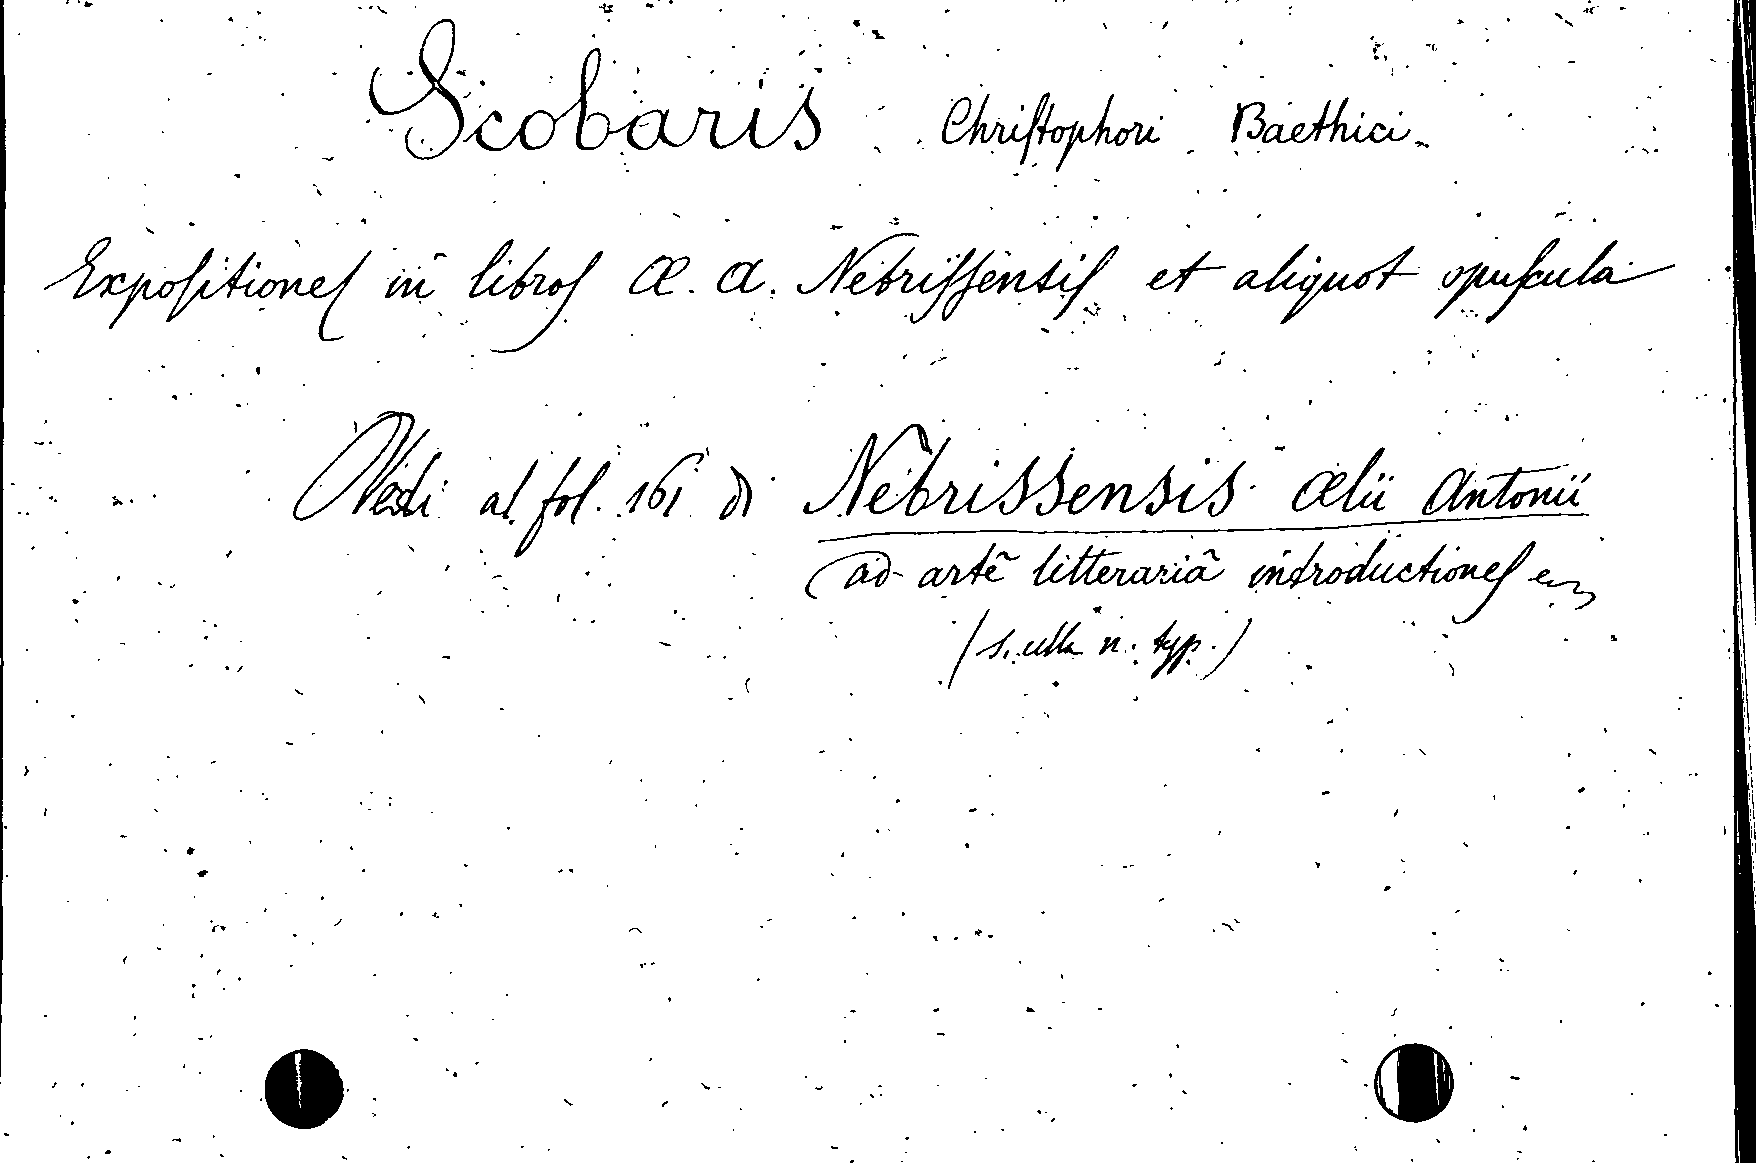 Scobaris Chriſtophori Baethici
Expoſitioneſ in libroſ Æ. A. Nebriſſenſiſ et aliquot opuſcula
Vedi al fol. 161 di Nebrissensis Ælii Antonii
ad artẽ litterariã introductioneſ
(s. ulla n. typ.)